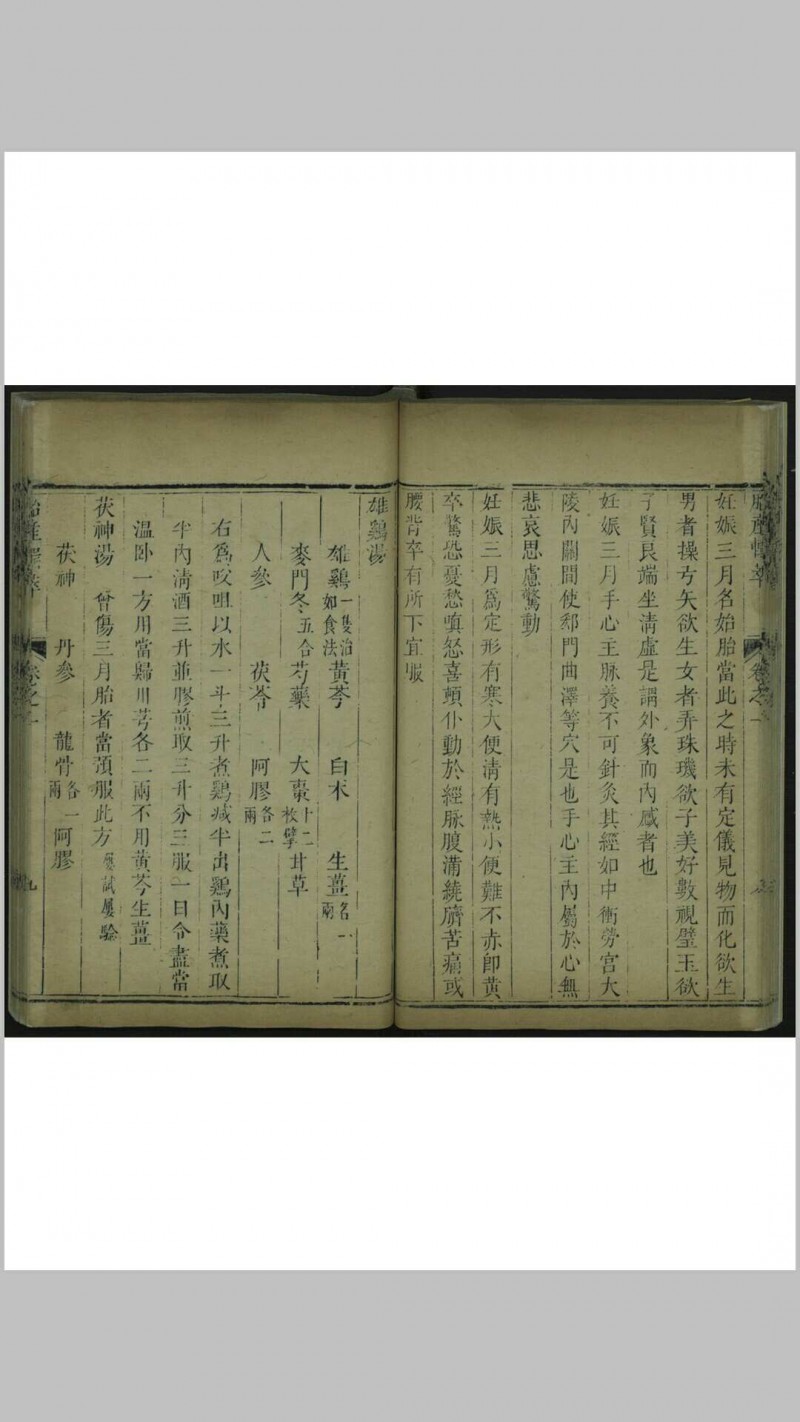 妊娠三月名始胎當此之時未有定儀見物而化欲生
男者操弓矢欲生女者弄珠璣欲子美好數視璧玉欲
子賢良端坐清虛是謂外象而內感者也
妊娠三月手心主脉養不可針灸其經如中衝勞宮大
陵內關間使郄門曲澤等穴是也手心主內屬於心無
悲哀思慮驚動
妊娠三月爲定形有寒大便清有熱小便難不赤卽黃
卒驚恐憂愁嗔怒喜頓仆動於經脉腹滿繞臍苦痛或
腰背卒有所下宜服
雄鷄湯
雄鷄一隻治如食法 黃芩 白术 生薑各一兩
麥門冬五合 芍藥 大棗十二枚擘 甘草
人參 茯苓 阿膠各二兩
右爲㕮咀以水一斗三升煮鷄減半出鷄內藥煮取
半內清酒三升並膠煎取三升分三服一日令盡當
溫卧一方用當歸川芎各二兩不用黃芩生薑
茯神湯 曾傷三月胎者當預服此方屢試屢驗
茯神 丹參 龍骨各一兩 阿膠